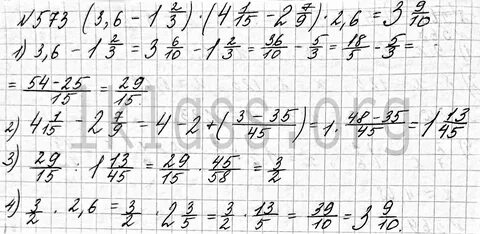 №573 (3,6 - 1 2/3) : (4 1/15 - 2 7/9) · 2,6 = 3 9/10
1) 3,6 - 1 2/3 = 3 6/10 - 1 2/3 = 36/10 - 5/3 = 18/5 - 5/3 =
= (54-25)/15 = 29/15
2) 4 1/15 - 2 7/9 = 4 - 2 + ((3-35)/45) = 1 · (48-35)/45 = 1 13/45
3) 29/15 : 1 13/45 = 29/15 · 45/58 = 3/2
4) 3/2 · 2,6 = 3/2 · 2 3/5 = 3/2 · 13/5 = 39/10 = 3 9/10.
1klass.org